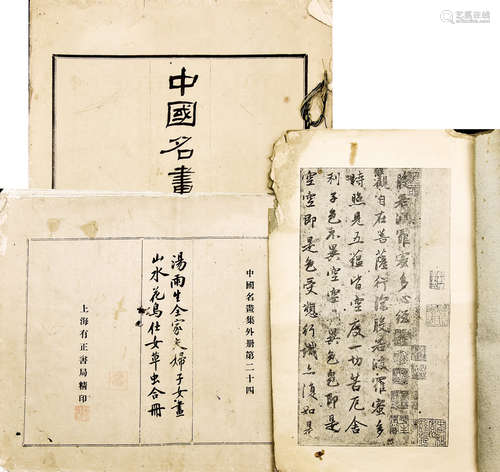 中國名畫
中國名畫集外册第二十四
湯雨生全家夫婦子女畫
山水花鳥仕女草虫合冊
上海有正書局精印
般若波羅蜜多心經
觀自在菩薩行深般若波羅蜜多
時照見五蘊皆空度一切苦厄舍
利子色不異空空不異色色即是
空空即是色受想行識亦復如是